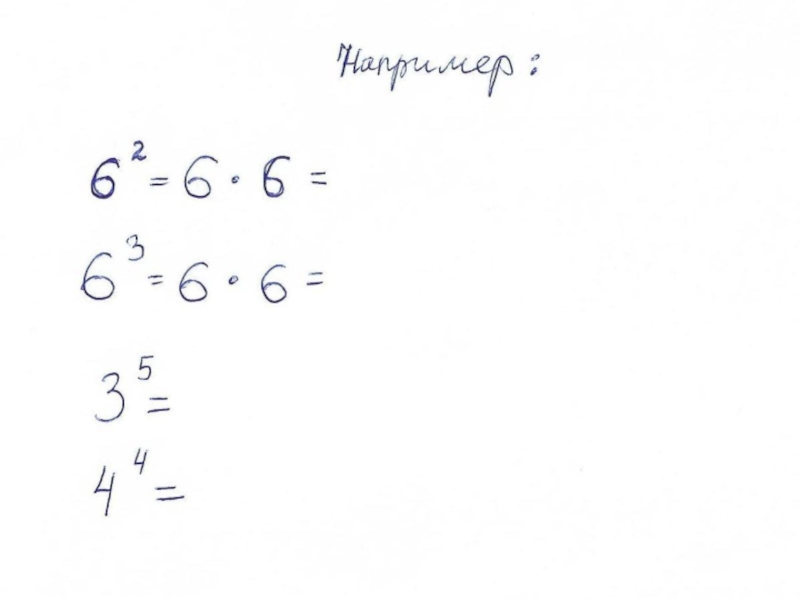 Например:
6² = 6 · 6 =
6³ = 6 · 6 =
3⁵ =
4⁴ =